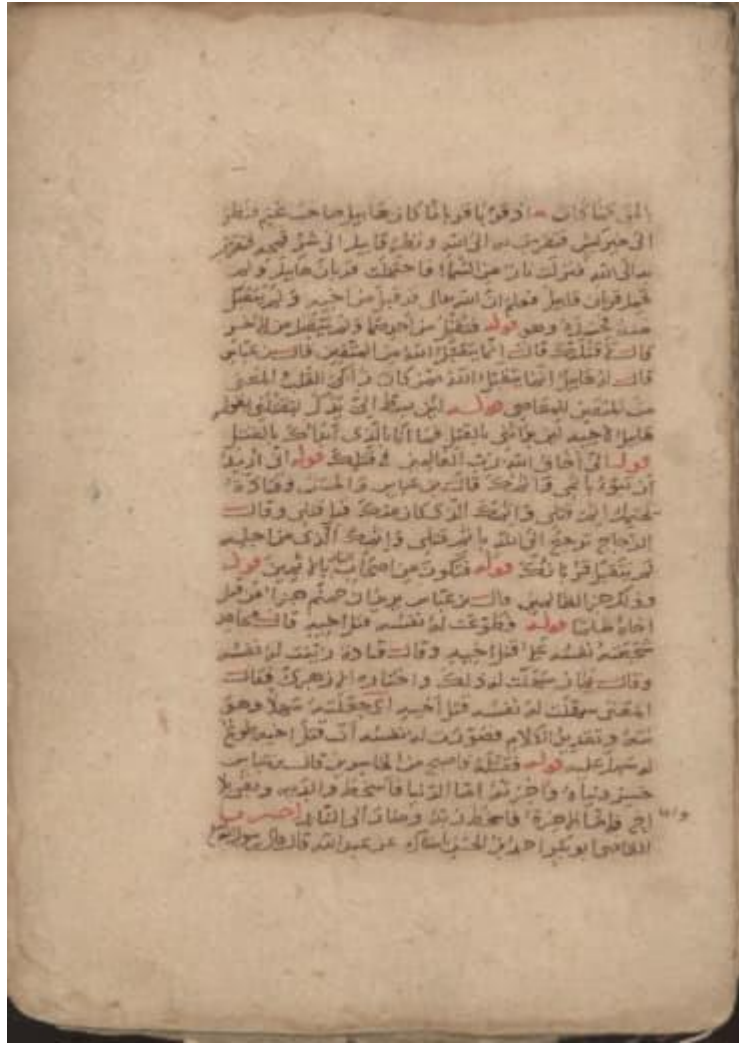 اذ قربا قربانا كان هابيل صاحب غنم فنظر
الى خير كبش فتقرب به الى الله ونظر قابيل الى شر قمحه فتقرب
به الى الله فنزلت نار من السماء فاحتملت قربان هابيل ولم
تحمل قربان قابيل فعلم ان الله تعالى قد قبل من اخيه ولم يتقبل
منه فحسده وهو قوله فتقبل من احدهما ولم يتقبل من الاخر
قال لاقتلنك قال انما يتقبل الله من المتقين قال بن عباس
قال له هابيل انما يتقبل الله ممن كان زاكي القلب
من المتقين للمعاصي قوله لئن بسطت الي يدك لتقتلني يقول
هابيل لاخيه لئن بالقتل فما انا بالذي ابداك بالقتل
قوله اني اخاف الله رب العالمين في قتلك قوله اني اريد
ان تبوء باثمي واثمك قال بن عباس والحسن وقتادة
اثم قتلي واثمك الذي كان منك قبل قتلي وقال
الزجاج ترجع الى الله باثم قتلي واثمك الذي من اجله
لم يتقبل قربانك قوله فتكون من اصحاب النار قوله
وذلك جزا الظالمين قال بن عباس يريد ان جهنم جزا من قتل
اخاه ظلما قوله فطوعت له نفسه قتل اخيه قال مجاهد
شجعته نفسه على قتل اخيه وقال قتادة زينت له نفسه
وقال سهلت له ذلك واختاره الازهري فقال
المعنى سهلت له نفسه قتل اخيه اي جعلته سهلا وهو
وتقدير الكلام فصورت له نفسه ان قتل اخيه طوع
له سهل عليه قوله فقتله فاصبح من الخاسرين قال بن عباس
خسر دنياه واخرته اما الدنيا فاسخط والديه وبقي بلا
اخ واما الاخرة فاسخط ربه وصار الى النار اخبرنا
القاضي ابو بكر احمد بن الحسن باسناده عن عبد الله قال قال رسول الله